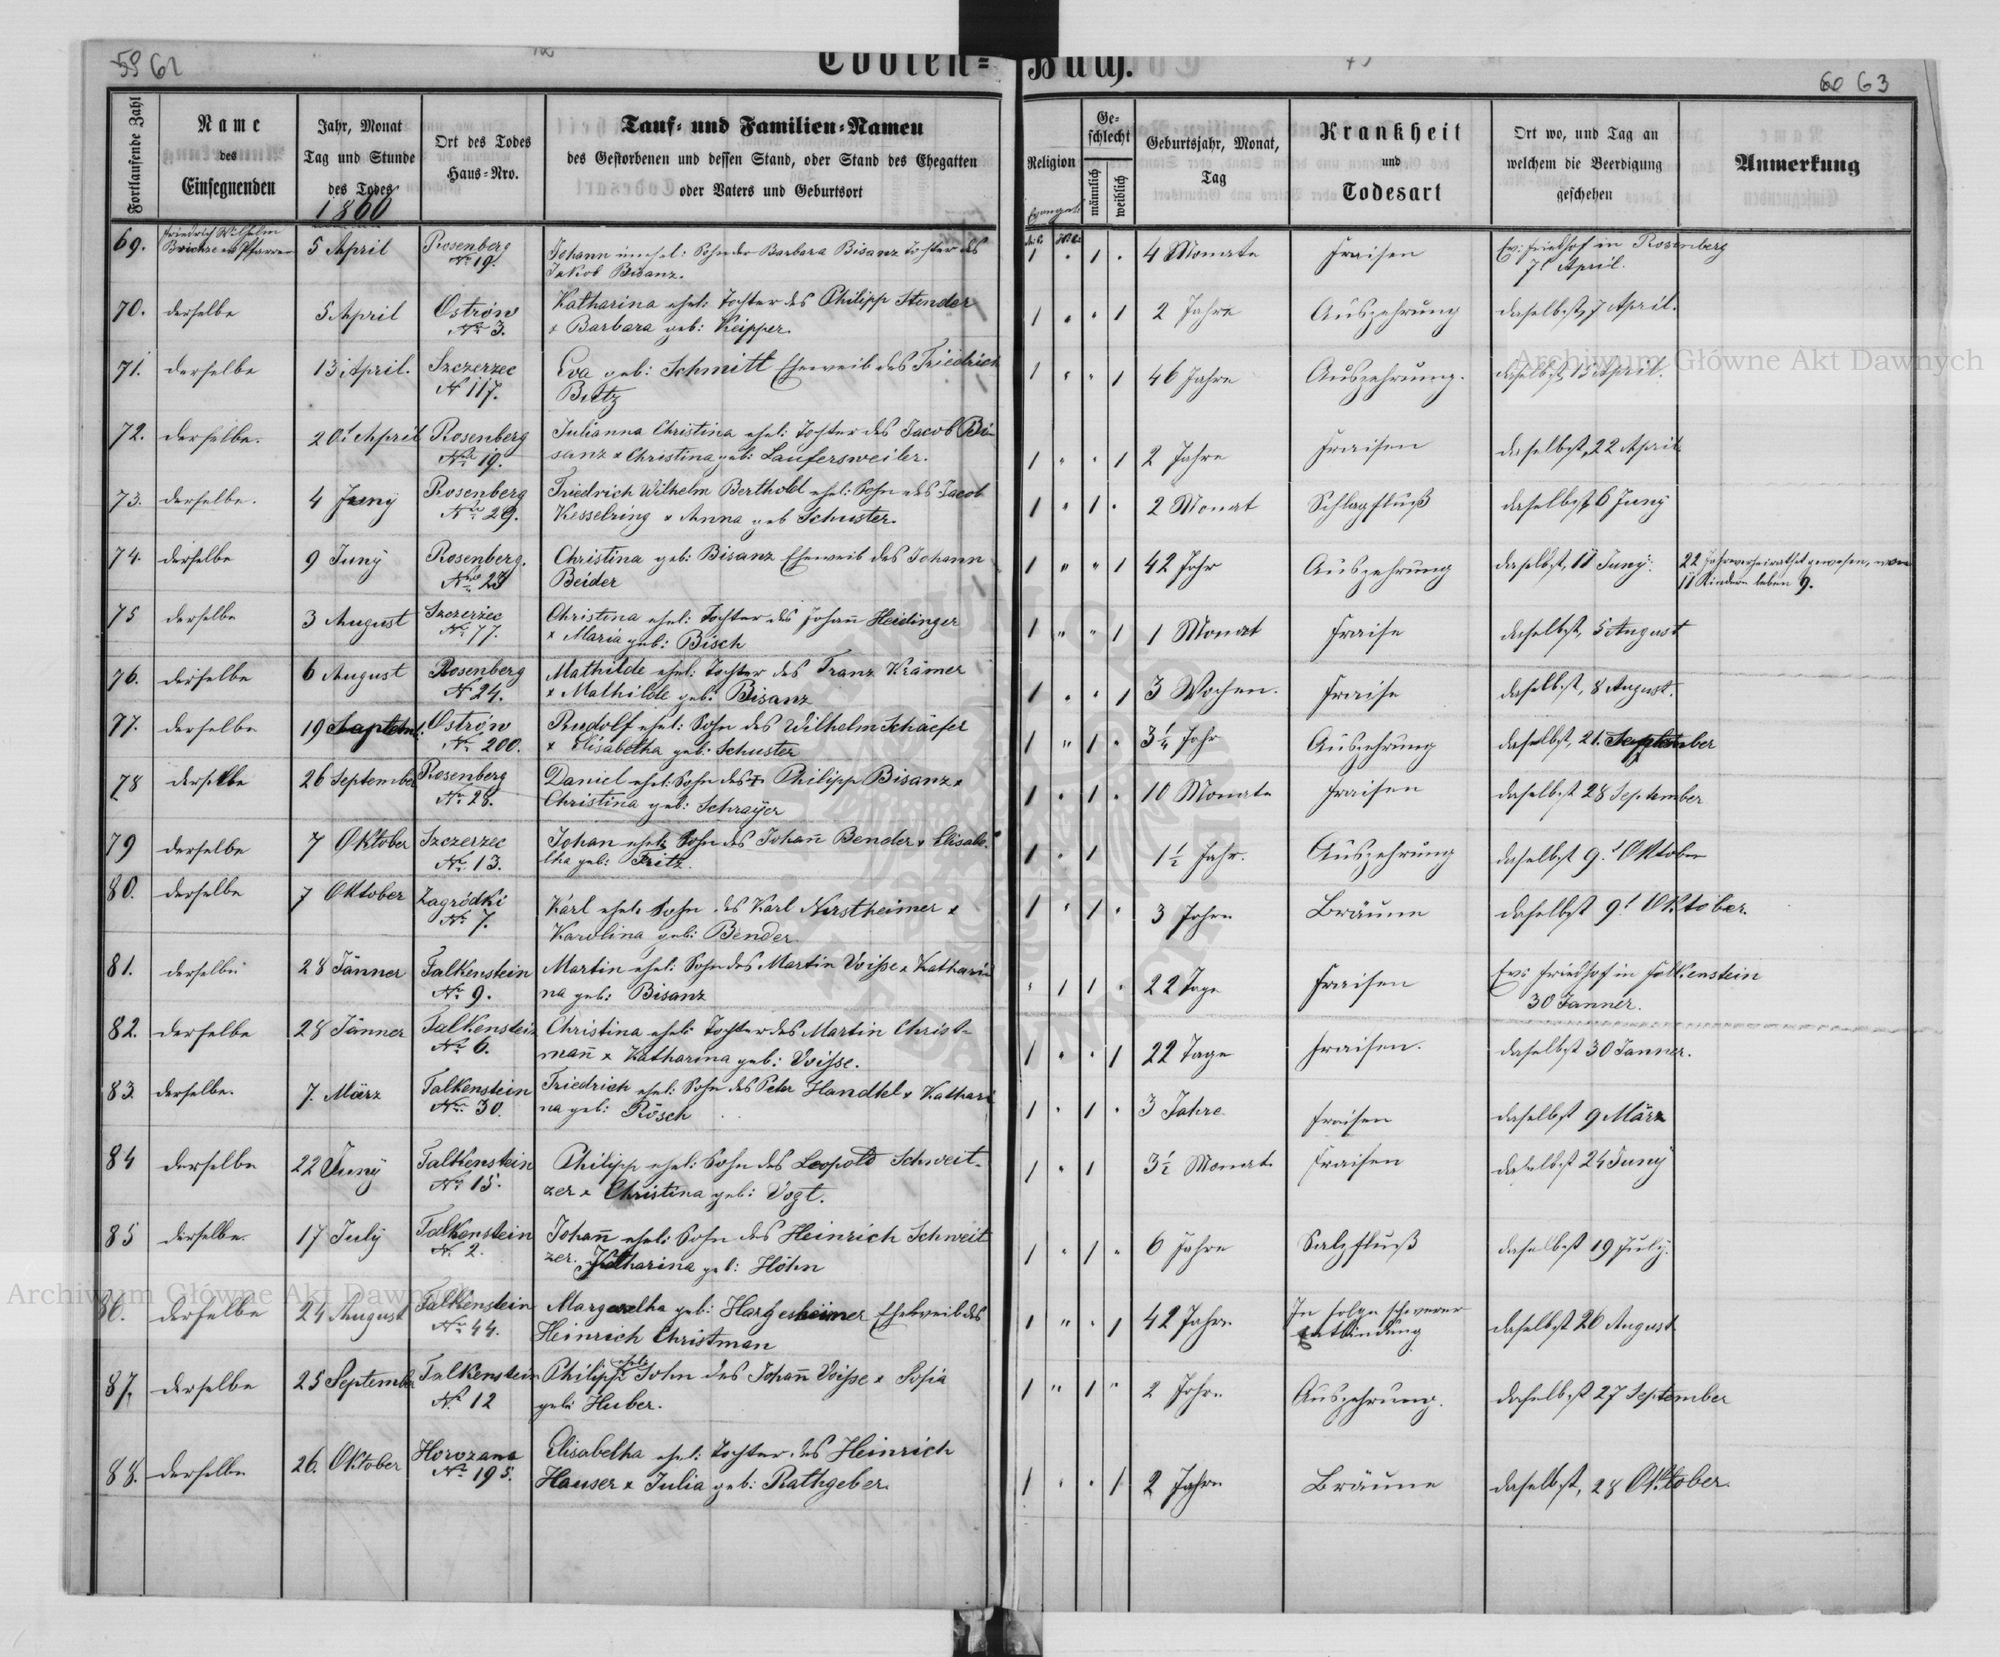 59 62
Todten-Buch.
60 63
Fortlaufende Zahl
Name
des
Einsegnenden
Jahr, Monat
Tag und Stunde
des Todes
1860
Ort des Todes
Haus-Nro.
Tauf- und Familien-Namen
des Gestorbenen und dessen Stand, oder Stand des Ehegatten
oder Vaters und Geburtsort
Religion
Ge-
schlecht
männlich
weiblich
Geburtsjahr, Monat,
Tag
Krankheit
und
Todesart
Ort wo, und Tag an
welchem die Beerdigung
geschehen
Anmerkung
69. Friedrich Wilhelm 5 April Rosenberg Johann unehel: Sohn der Barbara Bisanz Tochter des 1 1 4 Monate Fraisen Ev: Friedhof in Rosenberg
Pfarrer No 19. Jakob Bisanz. 7t April.
70. derselbe 5 April Ostrów Katharina ehel: Tochter des Philipp Stender 1 1 2 Jahre Auszehrung daselbst, 7 April.
No 3. x Barbara geb: Keipper.
71. derselbe 13 April. Szczerzec Eva geb: Schmitt Eheweib des Friedrich 1 1 46 Jahre Auszehrung. daselbst, 15 April.
N 117. Butz
72. derselbe. 20t April Rosenberg Julianna Christina ehel: Tochter des Jacob Bi- 1 1 2 Jahre Fraisen daselbst, 22 April
No 19. sanz x Christina geb: Laufersweiler.
73. derselbe. 4 Juny Rosenberg Friedrich Wilhelm Berthold ehel: Sohn des Jacob 1 1 2 Monat Schlagfluß daselbst 6 Juny
No 29. Kesselring x Anna geb Schuster.
74. derselbe 9 Juny Rosenberg. Christina geb: Bisanz Eheweib des Johann 1 1 42 Jahr Auszehrung daselbst, 11 Juny. 22 Jahre verheirathet gewesen, von
No 23 Beider 11 Kindern leben 9.
75 derselbe 3 August Szczerzec Christina ehel: Tochter des Johañ Heidinger 1 1 1 Monat Fraise daselbst, 5 August
No 77. x Maria geb: Bisch
76. derselbe 6 August Rosenberg Mathilde ehel: Tochter des Franz Krämer 1 1 3 Wochen. Fraise daselbst, 8 August.
N 24. x Mathilde geb: Bisanz
77. derselbe 19 Septemb. Ostrów Rudolf ehel: Sohn des Wilhelm Schäefer 1 1 3¼ Jahr Auszehrung daselbst, 21. September
No 200. x Elisabetha geb: Schuster
78 derselbe 26 September Rosenberg Daniel ehel: Sohn des Philipp Bisanz x 1 1 10 Monate Fraisen daselbst 28 September
No 28. Christina geb: Schraÿer
79 derselbe 7 Oktober Szczerzec Johan ehel: Sohn des Johañ Bender x Elisabe 1 1 1½ Jahr. Auszehrung daselbst 9t Oktober
No 13. tha geb: Fritz.
80. derselbe 7 Oktober Zagródki Karl ehel: Sohn des Karl Nerstheimer x 1 1 3 Jahre Bräune daselbst 9t Oktober.
No 7. Karolina geb: Bender
81. derselbe 28 Jänner Falkenstein Martin ehel: Sohn des Martin Voiße x Kathari 1 1 22 Tage Fraisen Ev: Friedhof in Falkenstein
No 9. na geb: Bisanz 30 Janner.
82. derselbe 28 Jänner Falkenstein Christina ehel: Tochter des Martin Christ- 1 1 22 Tage Fraisen. daselbst 30 Janner.
No 6. mañ x Katharina geb: Voiße.
83 derselbe. 7. März Falkenstein Friedrich ehel: Sohn des Peter Handtel x Kathari 1 1 3 Jahre Fraisen daselbst 9 März
No 30. na geb: Rösch
84 derselbe 22 Juny Falkenstein Philipp ehel: Sohn des Leopold Schweit- 1 1 3½ Monate Fraisen daselbst 24 Juny
No 15. zer x Christina geb: Vogt.
85 derselbe 17 July Falkenstein Johañ ehel: Sohn des Heinrich Schweit 1 1 6 Jahre Salzfluß daselbst 19 July.
N. 2. zer. Katharina geb: Höhn
86. derselbe 24 August Falkenstein geb: Eheweib des 1 1 42 Jahre In folge schwerer daselbst 26 August
No 44. Heinrich Christman entbindung
87. derselbe 25 September Falkenstein Philipp ehel: Sohn des Johañ Voiße x Sofia 1 1 2 Jahre Auszehrung. daselbst 27 September
No 12 geb: Huber.
88. derselbe 26. Oktober Horozana Elisabetha ehel: Tochter des Heinrich 1 1 2 Jahre Bräune daselbst, 28 Oktober.
No 195. Hauser x Julia geb: Rathgeber.
Archiwum Główne Akt Dawnych
Archiwum Główne Akt Dawnych